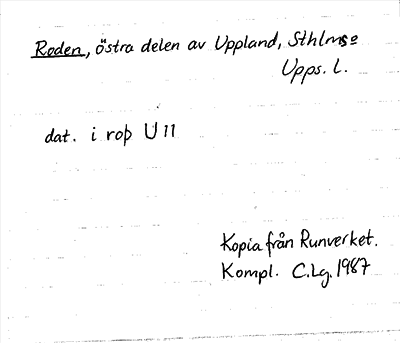 Roden, östra delen av Uppland, Sthlms o
Upps. L.
dat. i roþ U 11
Kopia från Runverket.
Kompl. C.Lg. 1987